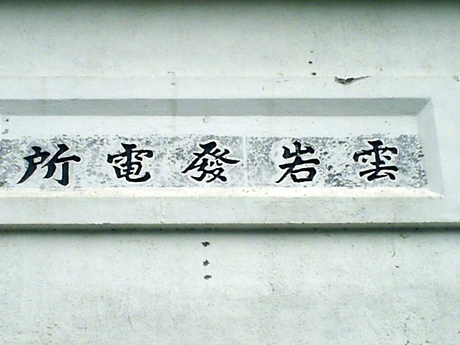 雲岩發電所